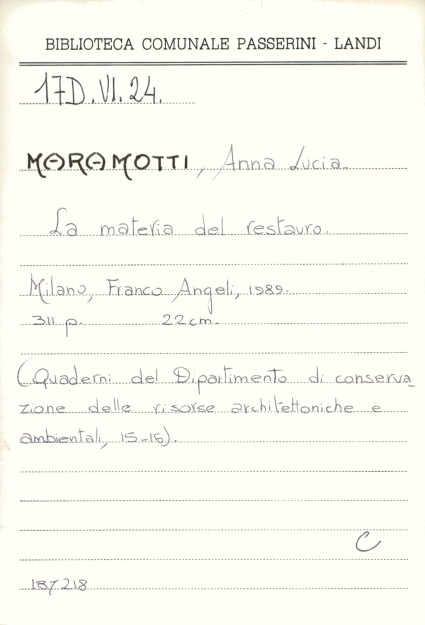 BIBLIOTECA COMUNALE PASSERINI - LANDI
17D.VI.24.
MARAMOTTI, Anna Lucia.
La materia del restauro.
Milano, Franco Angeli, 1989.
311 p. 22cm.
(Quaderni del Dipartimento di conserva_
zione delle risorse architettoniche e
ambientali, 15-16).
C
187218